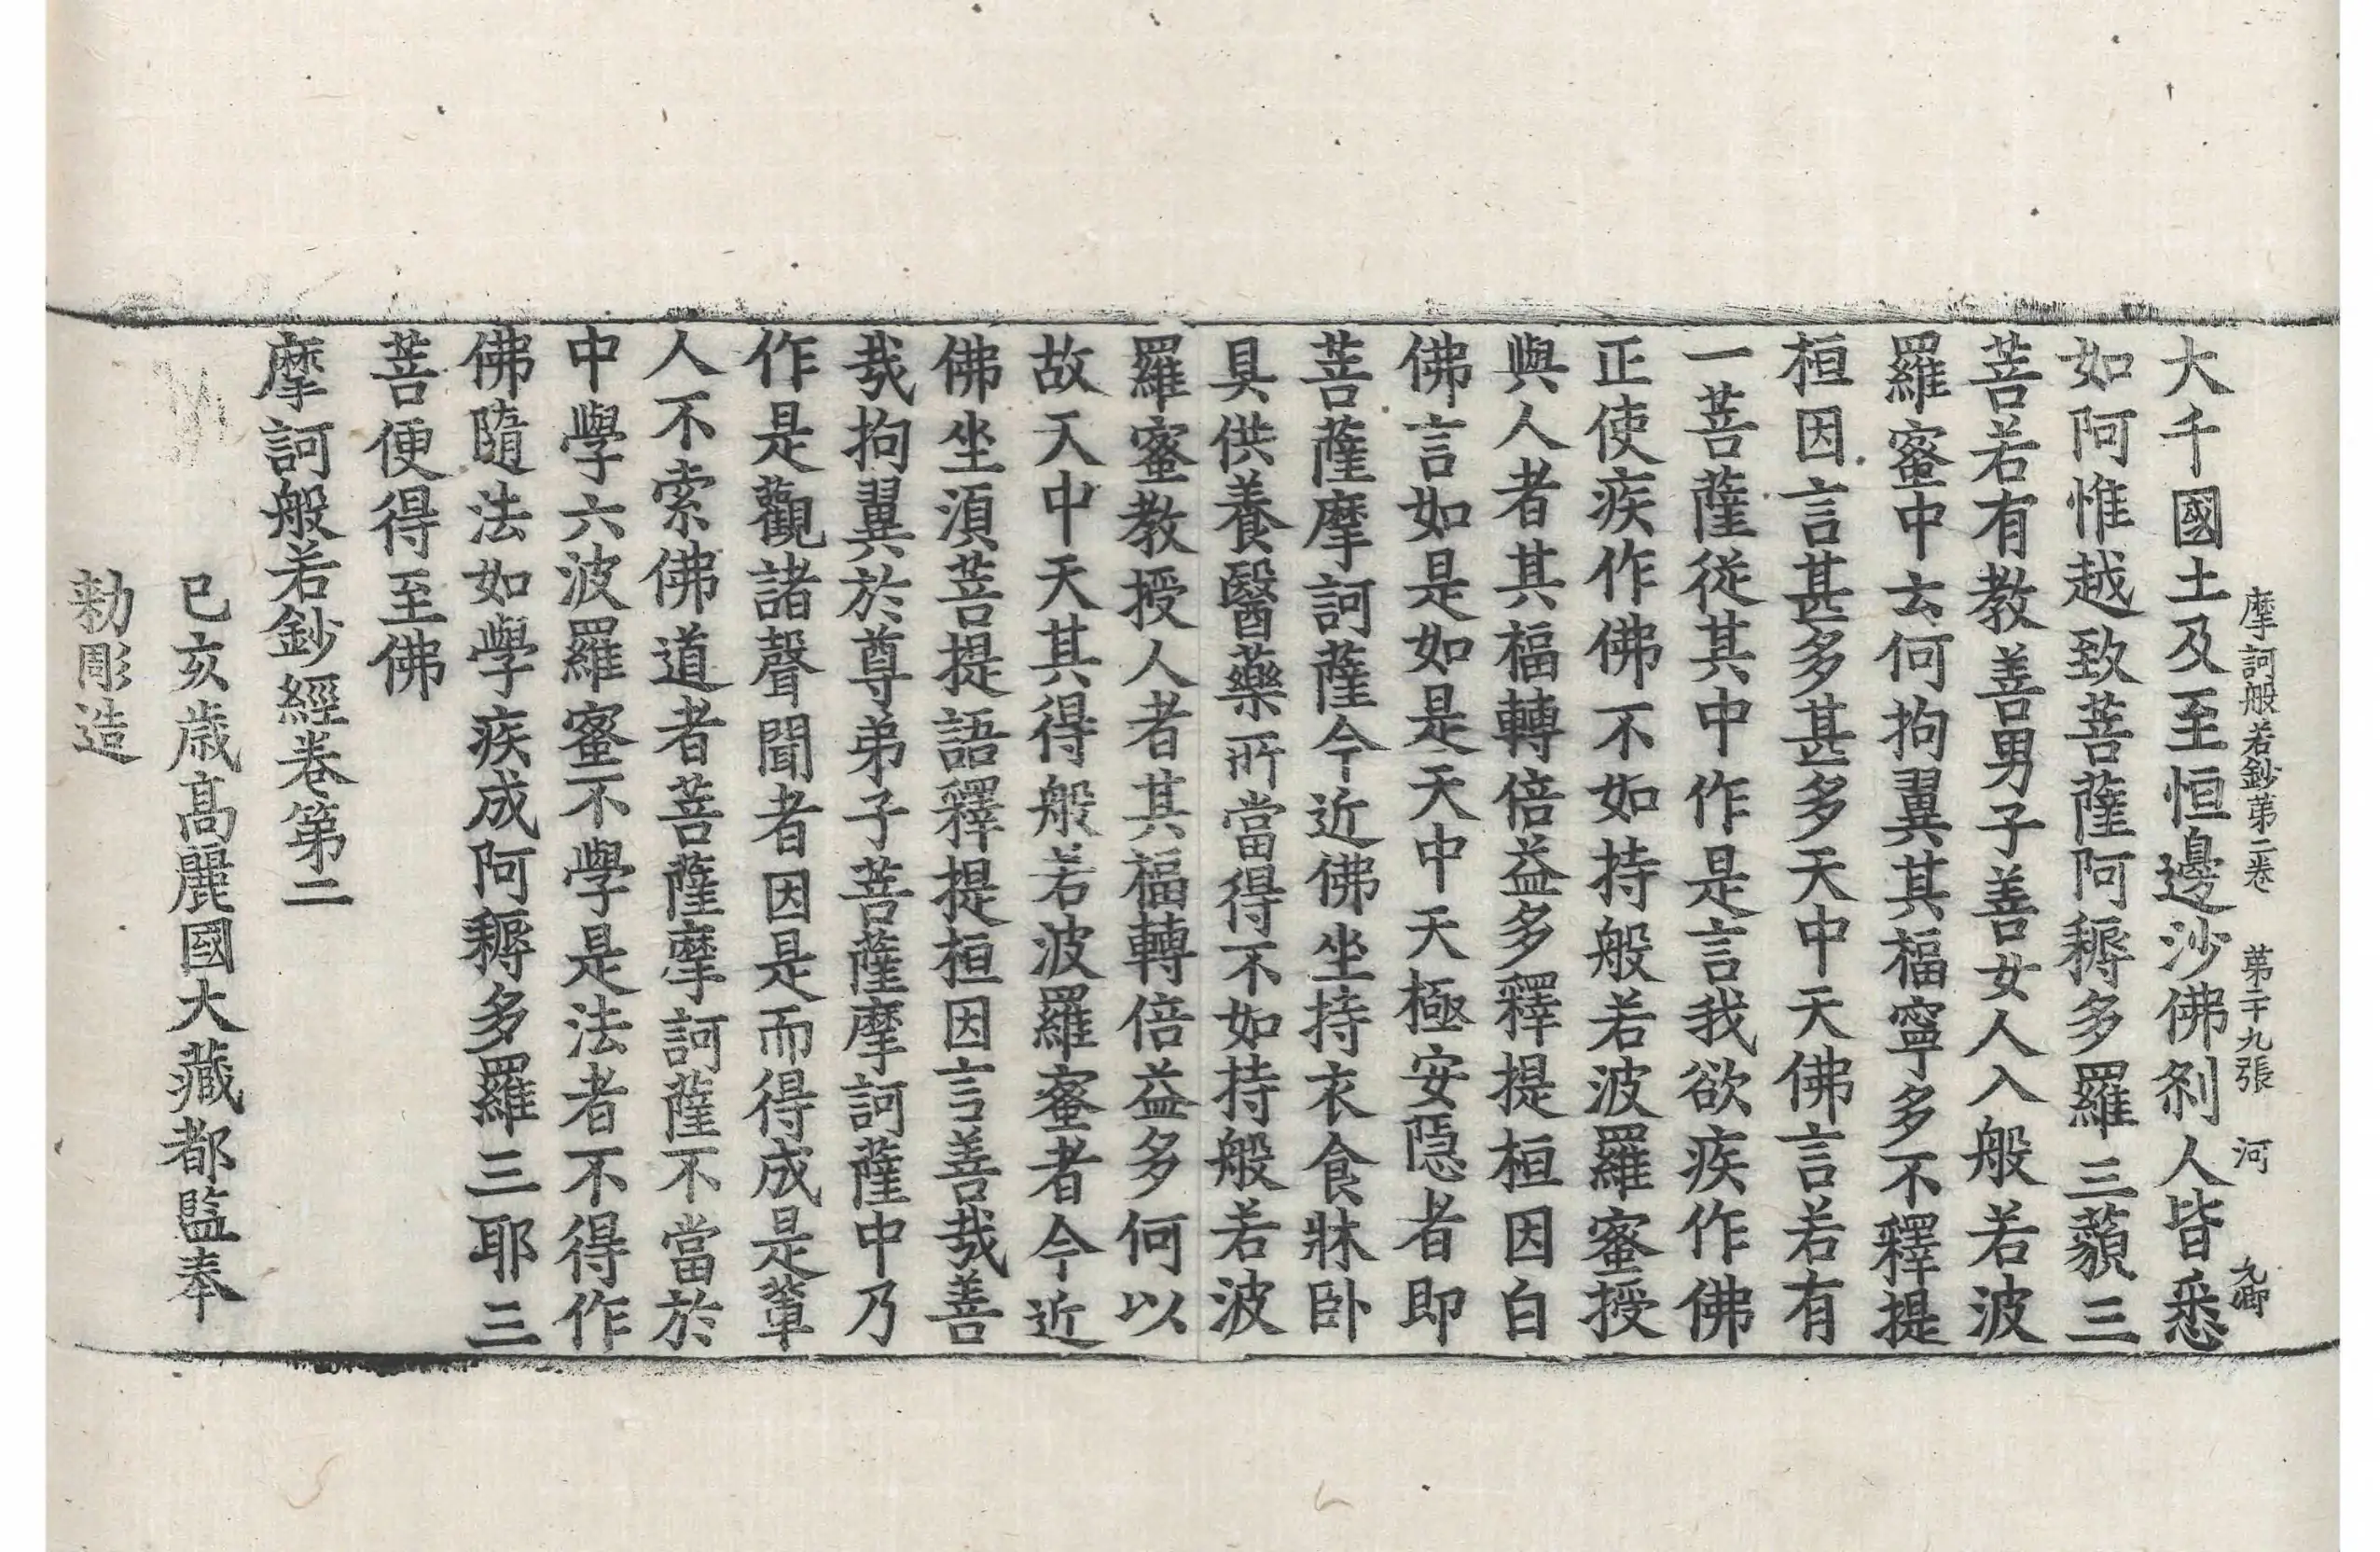 摩訶般若鈔第二卷　第二十九張　河
大千國土及至恒邊沙佛刹人皆悉
如阿惟越致菩薩阿耨多羅三藐三
菩若有教善男子善女人入般若波
羅蜜中云何拘翼其福寧多不釋提
桓因言甚多甚多天中天佛言若有
一菩薩從其中作是言我欲疾作佛
正使疾作佛不如持般若波羅蜜授
與人者其福轉倍益多釋提桓因白
佛言如是如是天中天極安隱者即
菩薩摩訶薩今近佛坐持衣食牀卧
具供養醫藥所當得不如持般若波
羅蜜教授人者其福轉倍益多何以
故天中天其得般若波羅蜜者今近
佛坐須菩提語釋提桓因言善哉善
哉拘翼於尊弟子菩薩摩訶薩中乃
作是觀諸聲聞者因是而得成是輩
人不索佛道者菩薩摩訶薩不當於
中學六波羅蜜不學是法者不得作
佛隨法如學疾成阿耨多羅三耶三
菩便得至佛
摩訶般若鈔經卷第二
己亥歲高麗國大藏都監奉
勅彫造